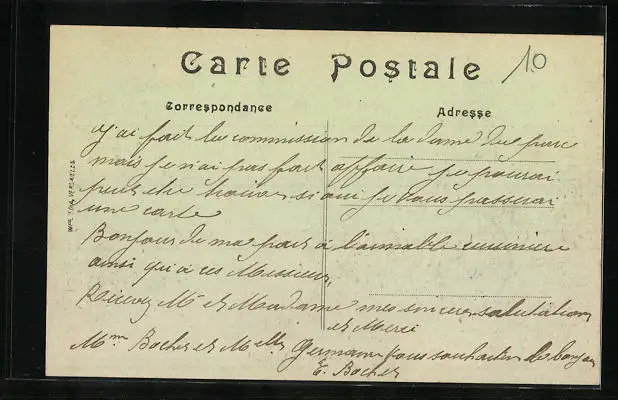 Carte Postale
10
Correspondance
Adresse
j'ai fait la commission de la dame du parc
mais je n'ai pas fait affaire je pourai
peut etre trouver si oui je vous passerai
une carte
Bonjour de ma part a l'aimable cuisiniere
ainsi qu'a ces Messieurs,
Recevez Mr et Madame mes sinceres salutations
et Merci
Mme Bocher et Melle Germaine vous souhaiten le bonjour
E. Bocher